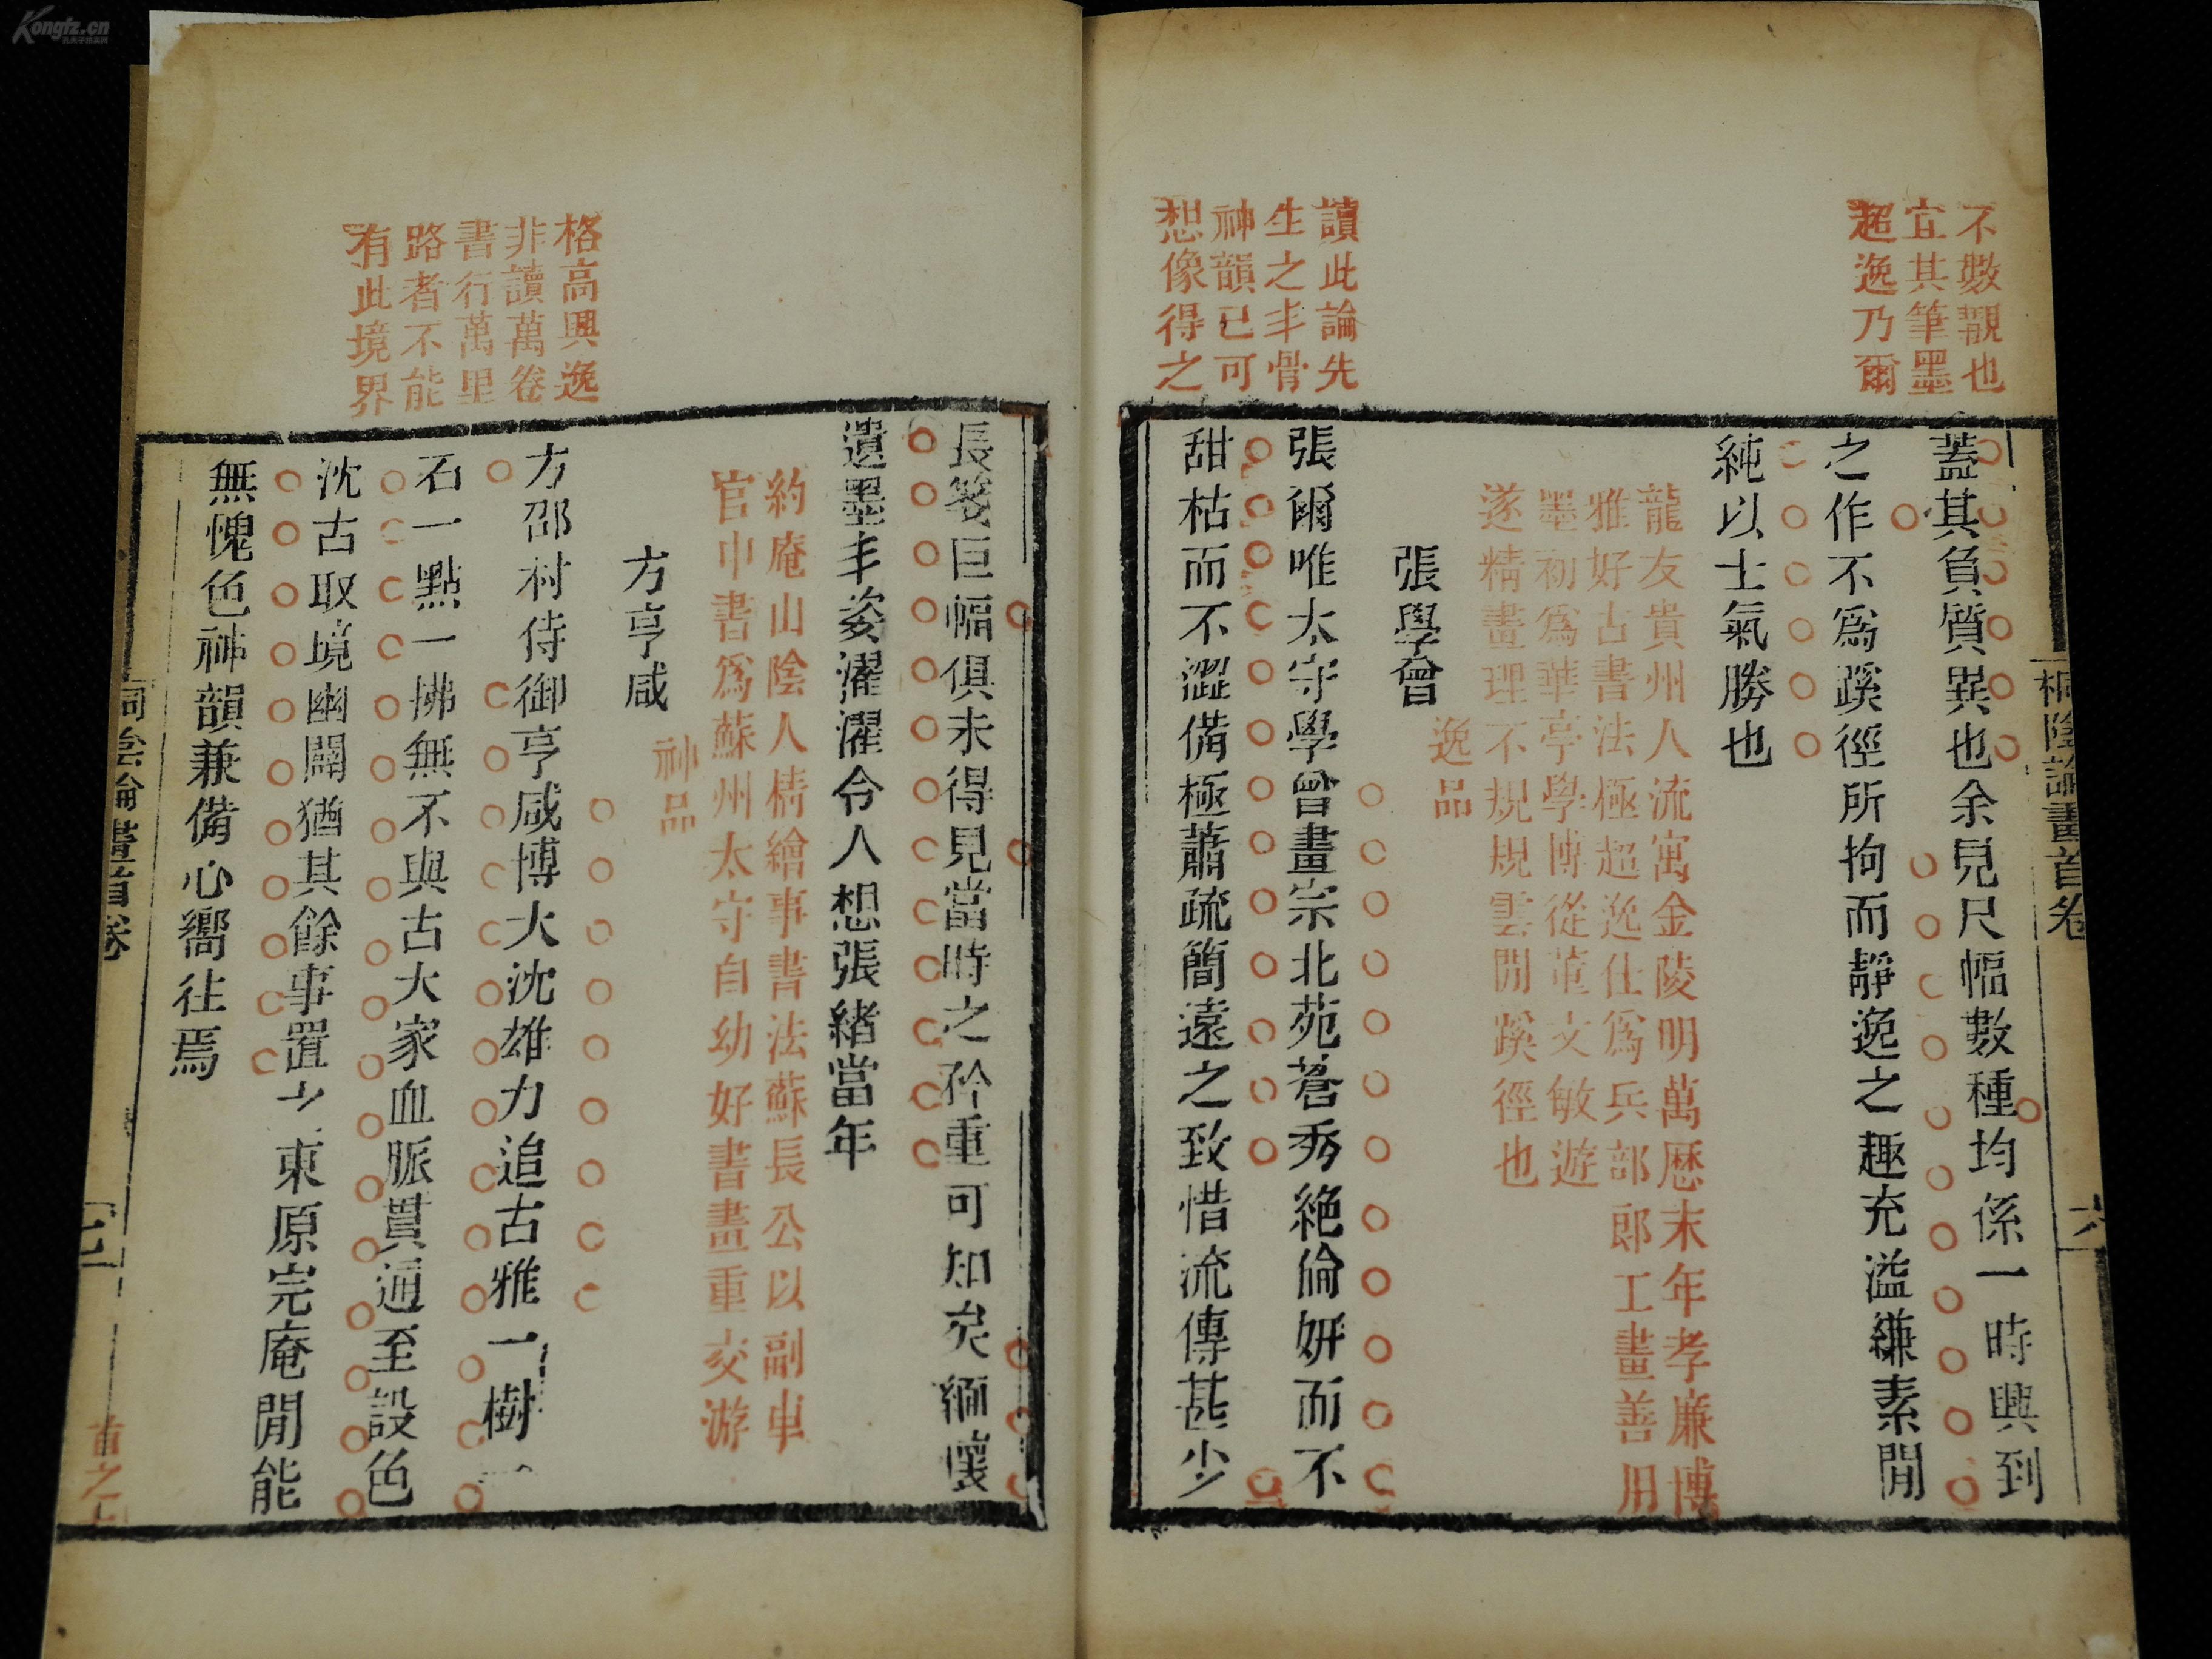 Kongfz.cn
不數觀也
宜其筆墨
超逸乃爾
蓋其負質異也余見尺幅數種均係一時興到
之作不爲蹊徑所拘而靜逸之趣充溢縑素閒
純以士氣勝也
龍友貴州人流寓金陵明萬歷末年孝廉博
雅好古書法極超逸仕爲兵部郎工畫善用
墨初爲華亭學博從董文敏遊
遂精畫理不規規雲閒蹊徑也
張學曾
逸品
讀此論先
生之丰骨
神韻已可
想像得之
張爾唯太守學曾畫宗北苑蒼秀絶倫妍而不
甜枯而不澀備極蕭疏簡遠之致惜流傳甚少
桐陰論畫首卷
六
長箋巨幅俱未得見當時之矜重可知矣緬懷
遺墨丰姿濯濯令人想張緒當年
約庵山陰人精繪事書法蘇長公以副車
官中書爲蘇州太守自幼好書畫重交游
方亨咸
神品
格高興逸
非讀萬卷
書行萬里
路者不能
有此境界
方邵村侍御亨咸博大沈雄力追古雅一樹一
石一點一拂無不與古大家血脈貫通至設色
沈古取境幽闢猶其餘事置之東原完庵閒能
無愧色神韻兼備心嚮往焉
桐陰論畫首卷
七
首之七